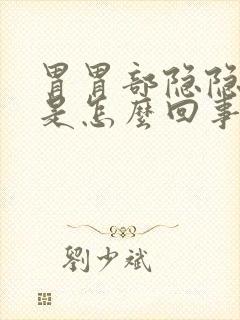 胃胃部隐隐
是怎麽回事
劉少斌